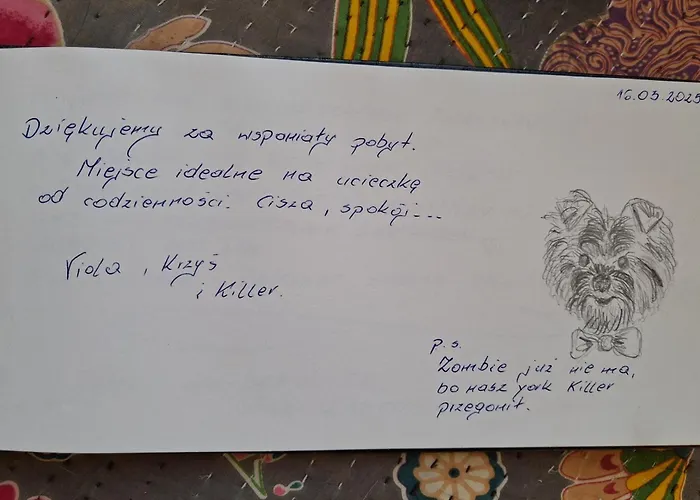 16.03.2025
Dziękujemy za wspaniały pobyt.
Miejsce idealne na ucieczkę
od codzienności. Cisza, spokój...
Viola, Krzyś
i Killer.
p.s.
Zombie już nie ma,
bo nasz york Killer
przegonił.